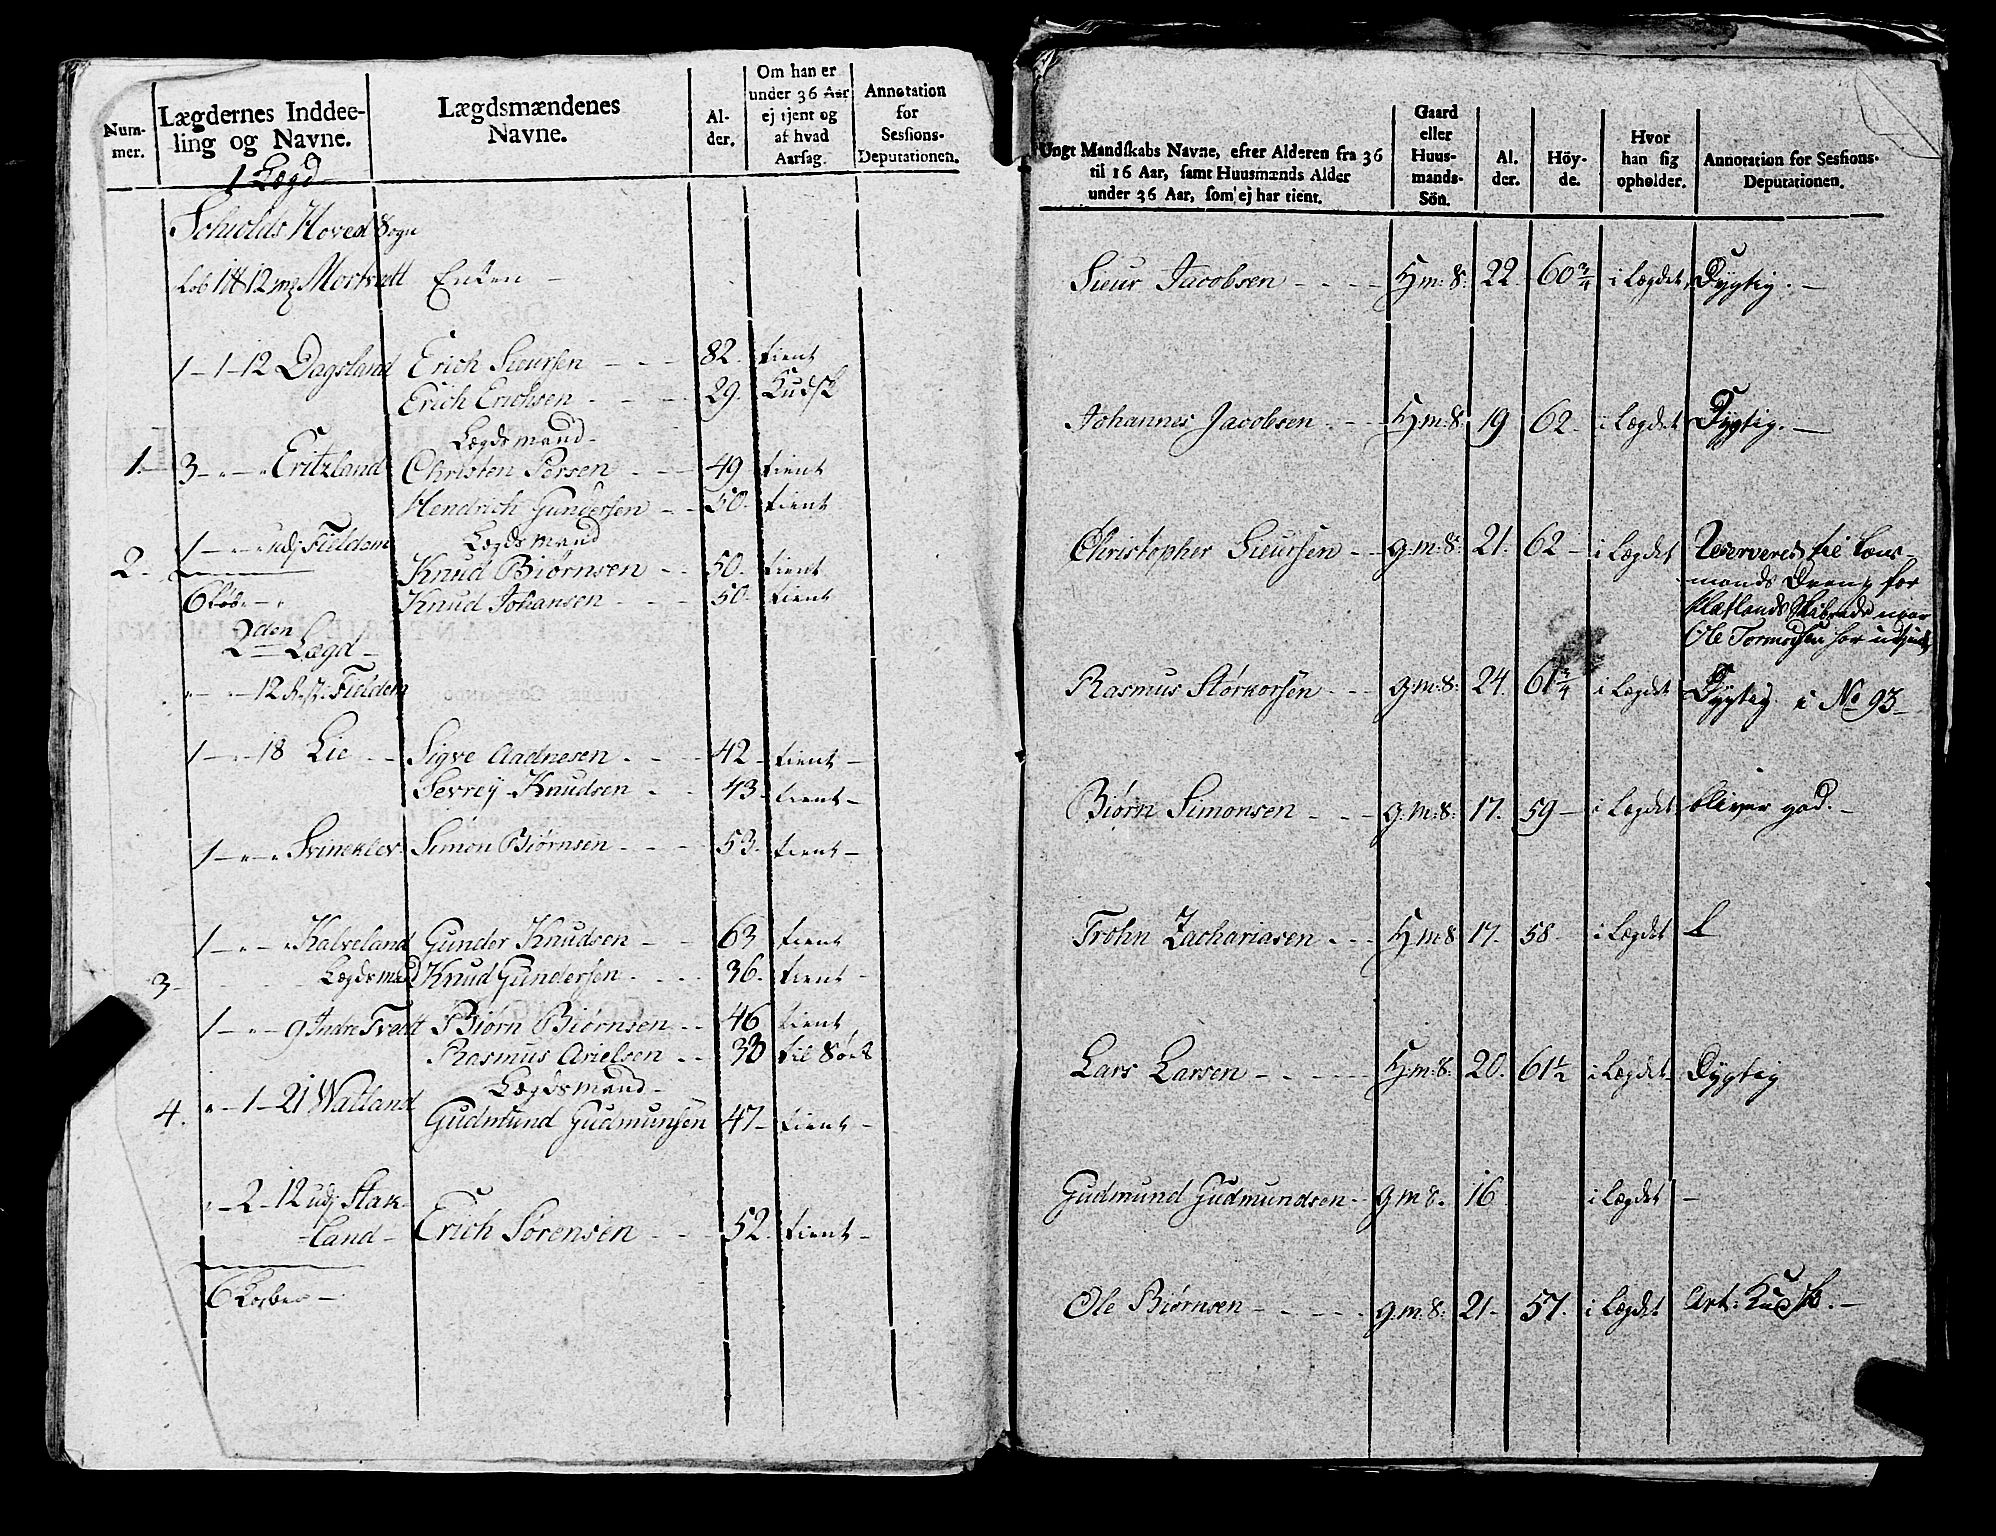 Num-
mer.
Lægdernes Inddee-
ling og Navne.
Lægdsmændenes
Navne.
Al-
der.
Om han er
under 36 Aar
ej tjent og
af hvad
Aarsag.
Annotation
for
Sessions-
Deputationen.
1 Lægd
Hoved Sogn
Løb 1 12 Enken –
1 – 1 – 12 Dagsland Erich Siursen 82. tient
Erich Erichsen 29. Kudsk
Lægdsmand
1. 3 – „ – „ Eritzland Christen Persen 49. tient
Hendrich Gundersen 50. tient
1 – „ – „ udj Fielden Lægdsmand
2. Knud Biørnsen 50. tient
6 Løb „ – „ Knud Johansen 50. tient
2den Lægd
„ – „ – 12 Fielden
1 – „ – 18 Lie Sigve Aadnesen 42 – tient –
Sevrej Knudsen 43 – tient –
1 – „ – „ Svinekler Simon Biørnsen 53. tient –
1 – „ – „ Kalveland Gunder Knudsen 63 tient
3 – Lægdsmand Knud Gundersen 36. tient –
1 – „ – 9 Indre Tvedt Biørn Biørnsen 46 tient
Rasmus Arielsen 38 til Søes
Lægdsmand –
4. „ – 1 – 21 Watland Gudmund Gudmunsen 47 – tient –
„ – 2 – 12 udj Stak-
-land – Erich Sørensen 52. tient –
6 Løber –
Ungt Mandskabs Navne, efter Alderen fra 36
til 16 Aar, samt Huusmænds Alder
under 36 Aar, som ej har tient.
Gaard
eller
Huus-
mands-
Sön.
Al.
der.
Höy-
de.
Hvor
han sig
opholder.
Annotation for Sessions-
Deputationen.
Sieur Jacobsen – – – – H:m:S: 22. 60 3/4 i Lægdet, Dygtig. –
Johannes Jacobsen . – – H:m:S: 19 62 – i Lægdet Dygtig. –
Christopher Sieursen – – g:m:S: 21. 62 – i Lægdet Reserveres til Lens-
mands Dreng for
Skibrede naar
Ole Tormodsen har
Rasmus Størkorsen – – – g:m:S: 24. 61 3/4 i Lægdet Dygtig i No 93 –
Biørn Simonsen – – – – g:m:S: 17. 59 – i Lægdet bliver god. –
Trohn Zachariasen . – – H:m:S 17. 58 – i Lægdet
Lars Larsen – – – – H:m:S: 20. 61 1/2 i Lægdet Dygtig
Gudmund Gudmundsen – g.m S. 16 i Lægdet –
Ole Biørnsen – – – – – g:m:S: 21 – 57. i Lægdet Art: Kudsk. –